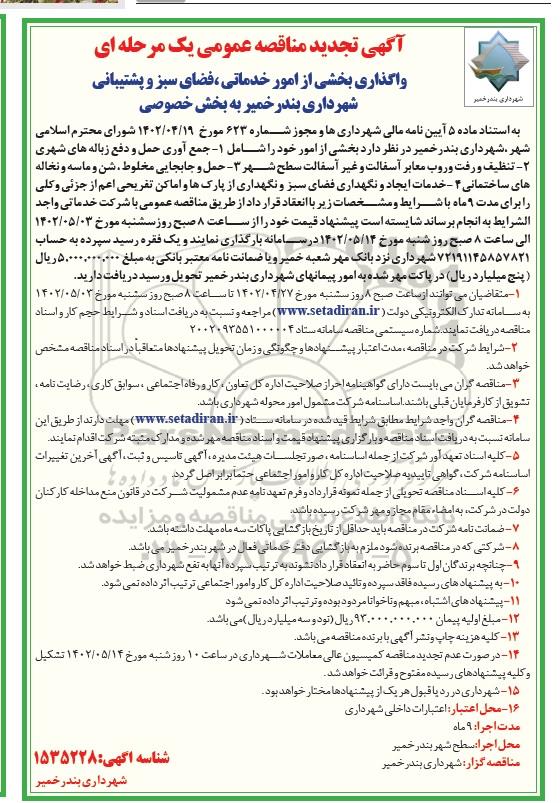 شهرداری بندرخمیر
آگهی تجدید مناقصه عمومی یک مرحله ای
واگذاری بخشی از امور خدماتی ،فضای سبز و پشتیبانی
شهرداری بندرخمیر به بخش خصوصی
به استناد ماده ۵ آیین نامه مالی شهرداری ها و مجوز شماره ۶۲۳ مورخ ۱۴۰۲/۰۴/۱۹ شورای محترم اسلامی
شهر ،شهرداری بندرخمیر در نظر دارد بخشی از امور خود را شامل ۱- جمع آوری حمل و دفع زباله های شهری
۲- تنظیف و رفت وروب معابر آسفالت و غیر آسفالت سطح شهر ۳-حمل و جابجایی مخلوط ، شن و ماسه و نخاله
های ساختمانی ۴- خدمات ایجاد و نگهداری فضای سبز و نگهداری از پارک ها و اماکن تفریحی اعم از جزئی وکلی
را برای مدت ۹ماه با شرایط و مشخصات زیر با انعقاد قرارداد از طریق مناقصه عمومی با شرکت خدماتی واجد
الشرایط به انجام برساند شایسته است پیشنهاد قیمت خود را از ساعت ۸ صبح روز سشنبه مورخ ۱۴۰۲/۰۵/۰۳
الی ساعت ۸ صبح روز شنبه مورخ ۱۴۰۲/۰۵/۱۴ در سامانه بارگذاری نمایند و یک فقره رسید سپرده به حساب
۷۲۱۹۱۱۴۵۸۵۷۸۲۱ شهرداری نزد بانک مهر شعبه خمیر و یا ضمانت نامه معتبر بانکی به مبلغ ۵.۰۰۰.۰۰۰.۰۰۰ ریال
( پنج میلیارد ریال) در پاکت مهر شده به امور پیمانهای شهرداری بندرخمیر تحویل و رسید دریافت دارید.
۱-متقاضیان می توانند از ساعت صبح ۸ روز سشنبه مورخ ۱۴۰۲/۰۴/۲۷ تا ساعت ۸ صبح روز سشنبه مورخ ۱۴۰۲/۰۵/۰۳
به سامانه تدارک الکترونیکی دولت ( www.setadiran.ir) مراجعه و نسبت به دریافت اسناد و شرایط حجم کار و اسناد
مناقصه دریافت نمایند.شماره سیستمی مناقصه سامانه ستاد ۲۰۰۲۰۹۳۵۵۱۰۰۰۰۰۴
۲-شرایط شرکت در مناقصه ،مدت اعتبار پیشنهادها و چگونگی وزمان تحویل پیشنهادها متعاقباً در اسناد مناقصه مشخص
خواهد شد.
۳-مناقصه گران می بایست دارای گواهینامه احراز صلاحیت اداره کل تعاون ، کار و رفاه اجتماعی ، سوابق کاری ، رضایت نامه ،
تشویق از کارفرمایان قبلی باشند.اساسنامه شرکت مشمول امور محوله شهرداری باشد.
۴-مناقصه گران واجد شرایط مطابق شرایط قید شده در سامانه ستاد ( www.setadiran.ir) مهلت دارند از طریق این
سامانه نسبت به دریافت اسناد مناقصه و بارگزاری پیشنهاد قیمت و اسناد مناقصه مهر شده و مدارک مثبته شرکت اقدام نمایند.
۵-کلیه اسناد تعهد آور شرکت از جمله اساسنامه ، صورتجلسات هیئت مدیره ، آگهی تاسیس و ثبت ، آگهی آخرین تغییرات
اساسنامه شرکت ، گواهی تاییدیه صلاحیت اداره کل کار و امور اجتماعی حتما برابر اصل گردد.
۶-کلیه اسناد مناقصه تحویلی از جمله نمونه قرارداد و فرم تعهدنامه عدم مشمولیت شرکت در قانون منع مداخله کارکنان
دولت در شرکت، به امضاء مقام مجاز و مهر شرکت رسیده باشد.
۷- ضمانت نامه شرکت در مناقصه باید حداقل از تاریخ بازگشایی پاکات سه ماه مهلت داشته باشد.
۸- شرکتی که در مناقصه برنده شود ملزم به بازگشایی دفتر خدماتی فعال در شهر بندرخمیر می باشد.
۹-چنانچه برندگان اول تا سوم حاضر به انعقاد قرارداد نشوند به ترتیب سپرده آنها به نفع شهرداری ضبط خواهد شد.
۱۰-به پیشنهادهای رسیده فاقد سپرده و تائید صلاحیت اداره کل کار و امور اجتماعی ترتیب اثر داده نمی شود.
۱۱-پیشنهادهای اشتباه، مبهم و ناخوانا مردود بوده وترتیب اثر داده نمی شود
۱۲-مبلغ اولیه پیمان ۹۳.۰۰۰.۰۰۰.۰۰۰ ریال (نود و سه میلیارد ریال )می باشد.
۱۳- کلیه هزینه چاپ ونشر آگهی با برنده مناقصه می باشد.
۱۴- در صورت عدم تجدید مناقصه کمیسیون عالی معاملات شهرداری در ساعت ۱۰ روز شنبه مورخ ۱۴۰۲/۰۵/۱۴ تشکیل
و کلیه پیشنهادهای رسیده مفتوح و قرائت خواهد شد.
۱۵- شهرداری در رد یا قبول هر یک از پیشنهادها مختار خواهد بود.
۱۶-محل اعتبار: اعتبارات داخلی شهرداری
مدت اجرا: ۹ ماه
محل اجرا: سطح شهر بندرخمیر
مناقصه گزار: شهرداری بندرخمیر
شناسه آگهی: ۱۵۳۵۲۲۸
شهرداری بندر خمیر